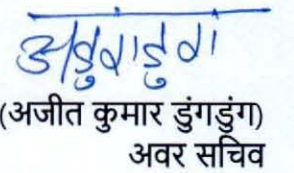 (अजीत कुमार डुंगडुंग)
अवर सचिव